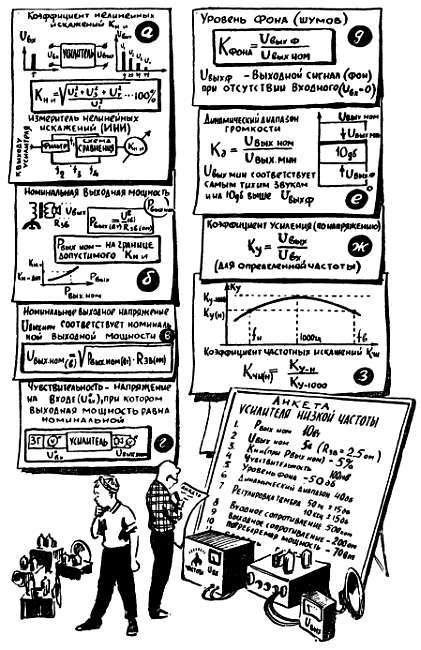 Коэффициент нелинейных
искажений Кни
а
Uвх
Uвх
УСИЛИТЕЛЬ
Uвых
Кни = √ ... · 100%
измеритель нелинейных
искажений (ИНИ)
К ВЫХОДУ
УСИЛИТЕЛЯ
ФИЛЬТР
СХЕМА
СРАВНЕНИЯ
Кни
f2 f3 f4
Номинальная выходная мощность
Rзв
Uвых
Pвых ном
Pвых ном – на границе
допустимого Кни
Кни
Pвых
Pвых.ном
б
Номинальное выходное напряжение
Uвых.ном соответствует номиналь
ной выходной мощности
в
Uвых.ном(в) = √Pвых.ном(вт) · Rзв(ом)
Чувствительность – напряжение
на входе (Uвх), при котором
выходная мощность равна
номинальной
ЗГ
УСИЛИТЕЛЬ
Uвх
Uвых.ном
г
Уровень фона (шумов)
Кфона = Uвых ф / Uвых ном
Uвых ф – выходной сигнал (фон)
при отсутствии входного (Uвх=0)
д
Динамический диапазон
громкости
Кд = Uвых ном / Uвых.мин
Uвых мин соответствует
самым тихим звукам
и на 10дб выше Uвых ф
Uвых ном
Uвых мин
10дб
Uвых ф
е
Коэффициент усиления (по напряжению)
Ку = Uвых / Uвх
(для определенной частоты)
ж
Ку
Ку-1000
Ку(н)
fн
1000гц
fв
Коэффициент частотных искажений Кчи
Кчи(н) = Ку-н / Ку-1000
з
АНКЕТА
УСИЛИТЕЛЯ НИЗКОЙ ЧАСТОТЫ
1. Pвых ном 10вт
2. Uвых ном 5в (Rзв = 2.5ом)
3. Кни (при Pвых ном) – 5%
4. Чувствительность 100мв
5. Уровень фона – 50дб
6. Динамический диапазон 40дб
7. Регулировка тембра 50гц ± 15дб
10кгц ± 15дб
8. Входное сопротивление 500ком
9. Выходное сопротивление – 200ом
10. Потребляемая мощность – 70вт
АНКЕТА
ЧАСТОТЫ
Uвх
Uвых